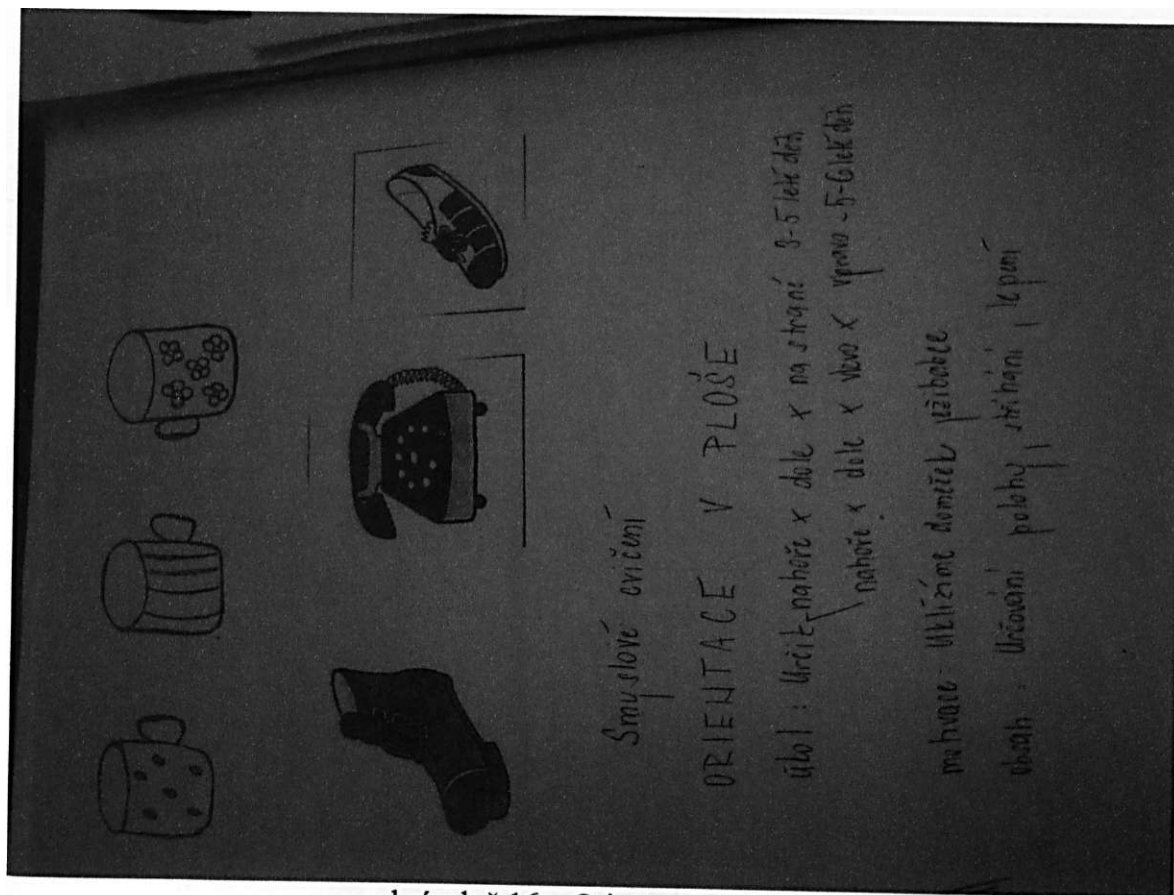 Smyslové cvičení
ORIENTACE V PLOŠE
úkol : Určit nahoře x dole x na straně 3-5 leté děti
nahoře x dole x vlevo x vpravo - 5-6 leté děti
motivace : Uklízíme domeček ježibabce
obsah : Určování polohy, stříhání, lepení